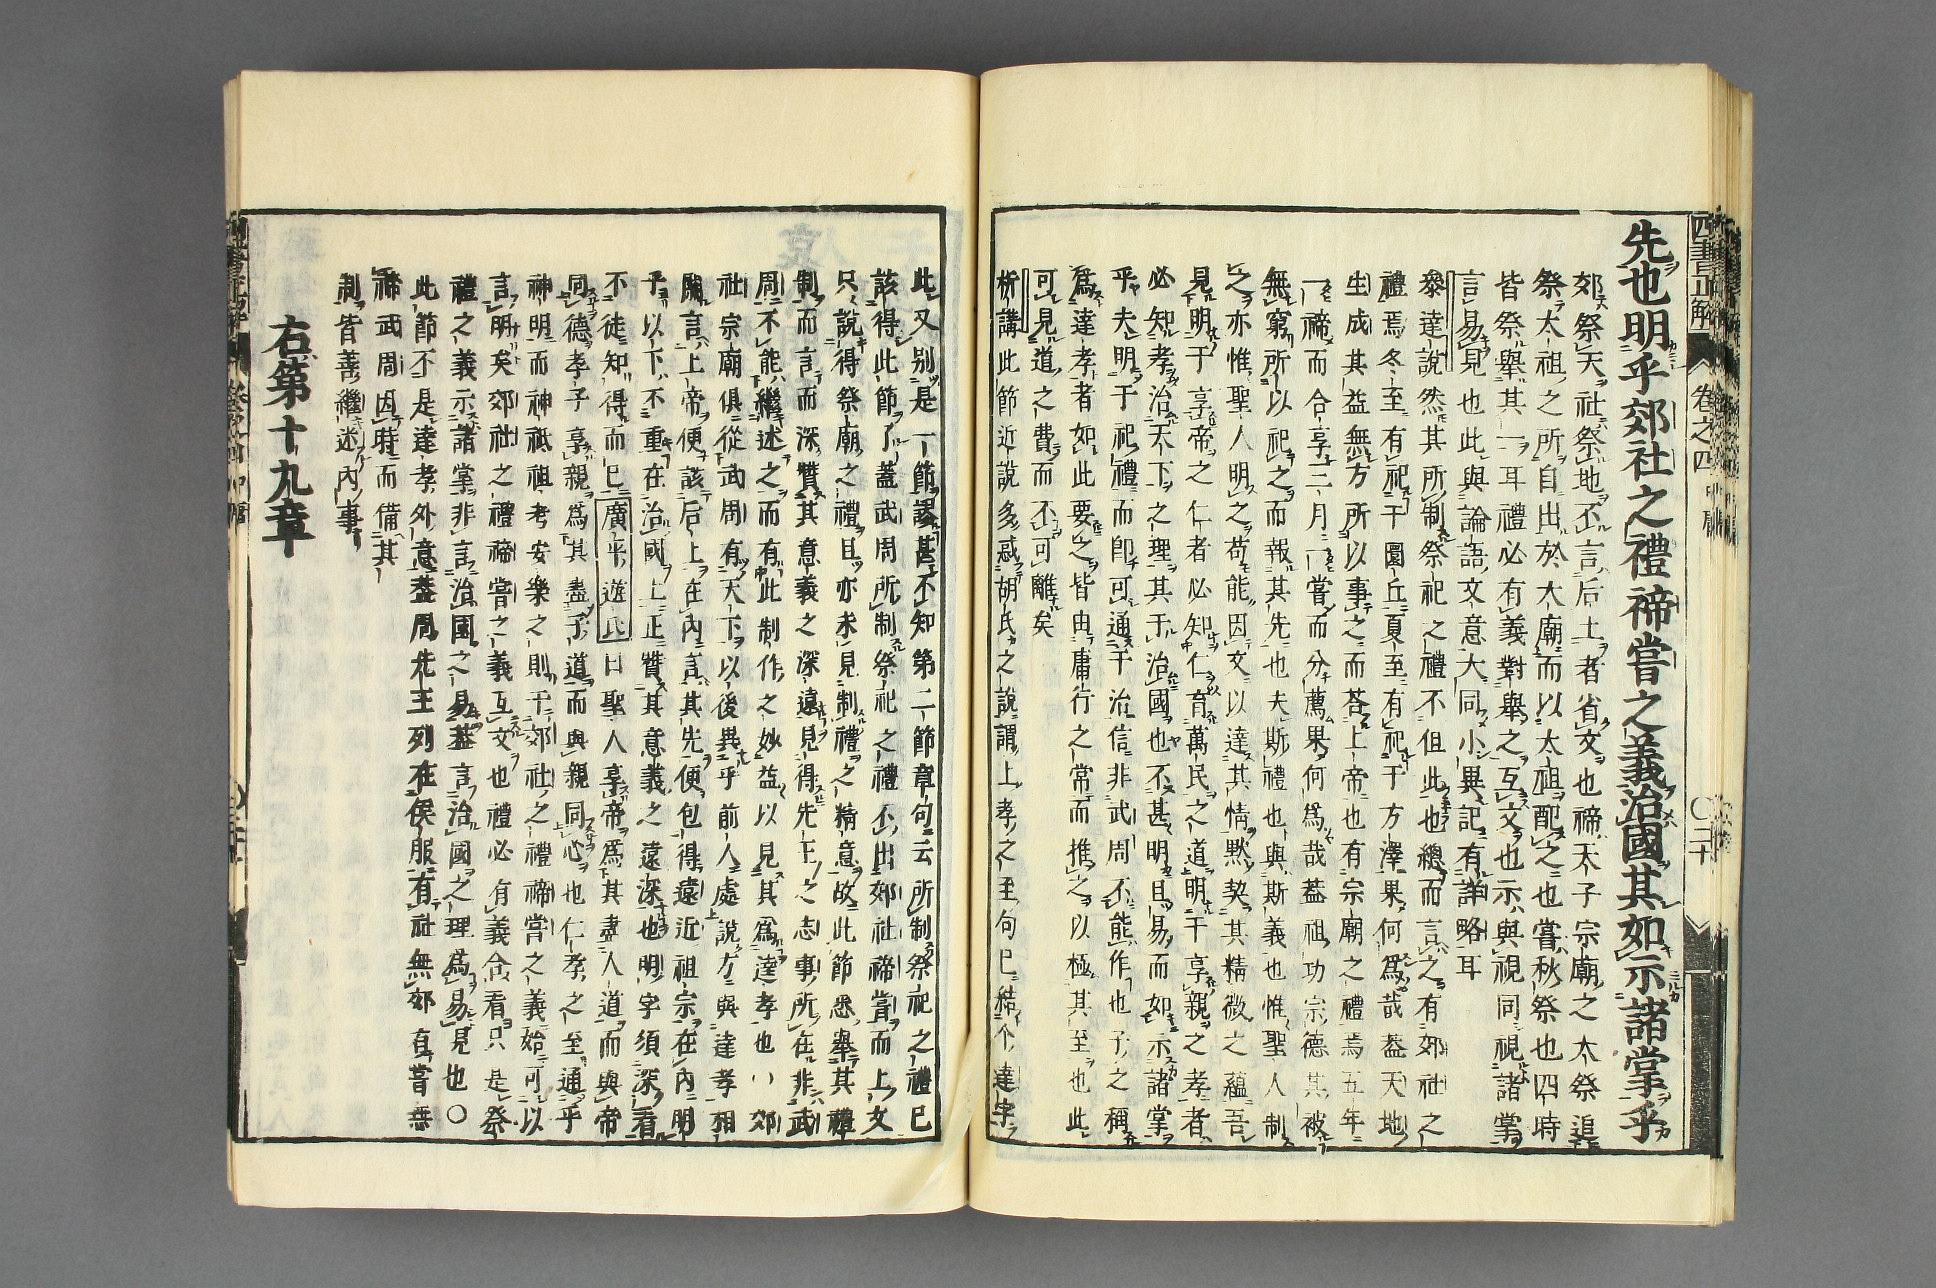 先也明乎郊社之禮禘嘗之義治國其如示諸掌乎
郊祭天社祭地不言后土者省文也禘天子宗廟之大祭追
祭太祖之所自出於大廟而以太祖配之也嘗秋祭也四時
皆祭舉其一耳禮必有義對舉之互文也示與視同視諸掌
言易見也此與論語文意大同小異記有詳略耳
參達說然其所制祭祀之禮不但此也總而言之有郊社之
禮焉冬至有祀于圜丘夏至有祀于方澤果何為哉蓋天地
生成其益無方所以事之而荅上帝也有宗廟之禮焉五年
一禘而合享二月一嘗而分薦果何為哉蓋祖功宗德其被
無窮所以祀之而報其先也夫斯禮也與斯義也惟聖人制
之亦惟聖人明之苟能因文以達其情默契其精微之蘊吾
見明于享帝之仁者必知仁育萬民之道明于享親之孝者
必知孝治天下之理其于治國也不甚明且易而如示諸掌
乎夫明于祀禮而卽可通于治信非武周不能作也子之稱
為達孝者如此要之皆由庸行之常而推之以極其至也此
可見道之費而不可離矣
析講此節近說多惑胡氏之說謂上孝之至句已結个達字
此又別是一節謬甚不知第二節章句云所制祭祀之禮已
該得此節了蓋武周所制祭祀之禮不出郊社禘嘗而上文
只說得祭廟之禮且亦未見制禮之精意故此節悉舉其禮
制而言而深贊其意義之深遠見得先王之志事所在非武
周不能繼述之而有此制作之妙益以見其為達孝也〇郊
社宗廟俱從武周有天下以後異乎前人處說方與達孝相
關言上帝便該后土在內言其先便包得遠近祖宗在內明
乎以下不重在治國上正贊其意義之遠深也明字須深看
不徒知得而已廣平遊氏曰聖人享帝為其盡人道而與帝
同德孝子享親為其盡子道而與親同心也仁孝之至通乎
神明而神祇祖考安樂之則于郊社之禮禘嘗之義始可以
言明矣郊社之禮禘嘗之義互文也禮必有義合看只是祭
禮之義示諸掌非言治國之易蓋言治國之理為易見也〇
此節不是達孝外意蓋周先王列在侯服有社無郊有嘗無
禘武周因時而備其
制皆善繼述內事
右第十九章
四書正解
卷之四
二十